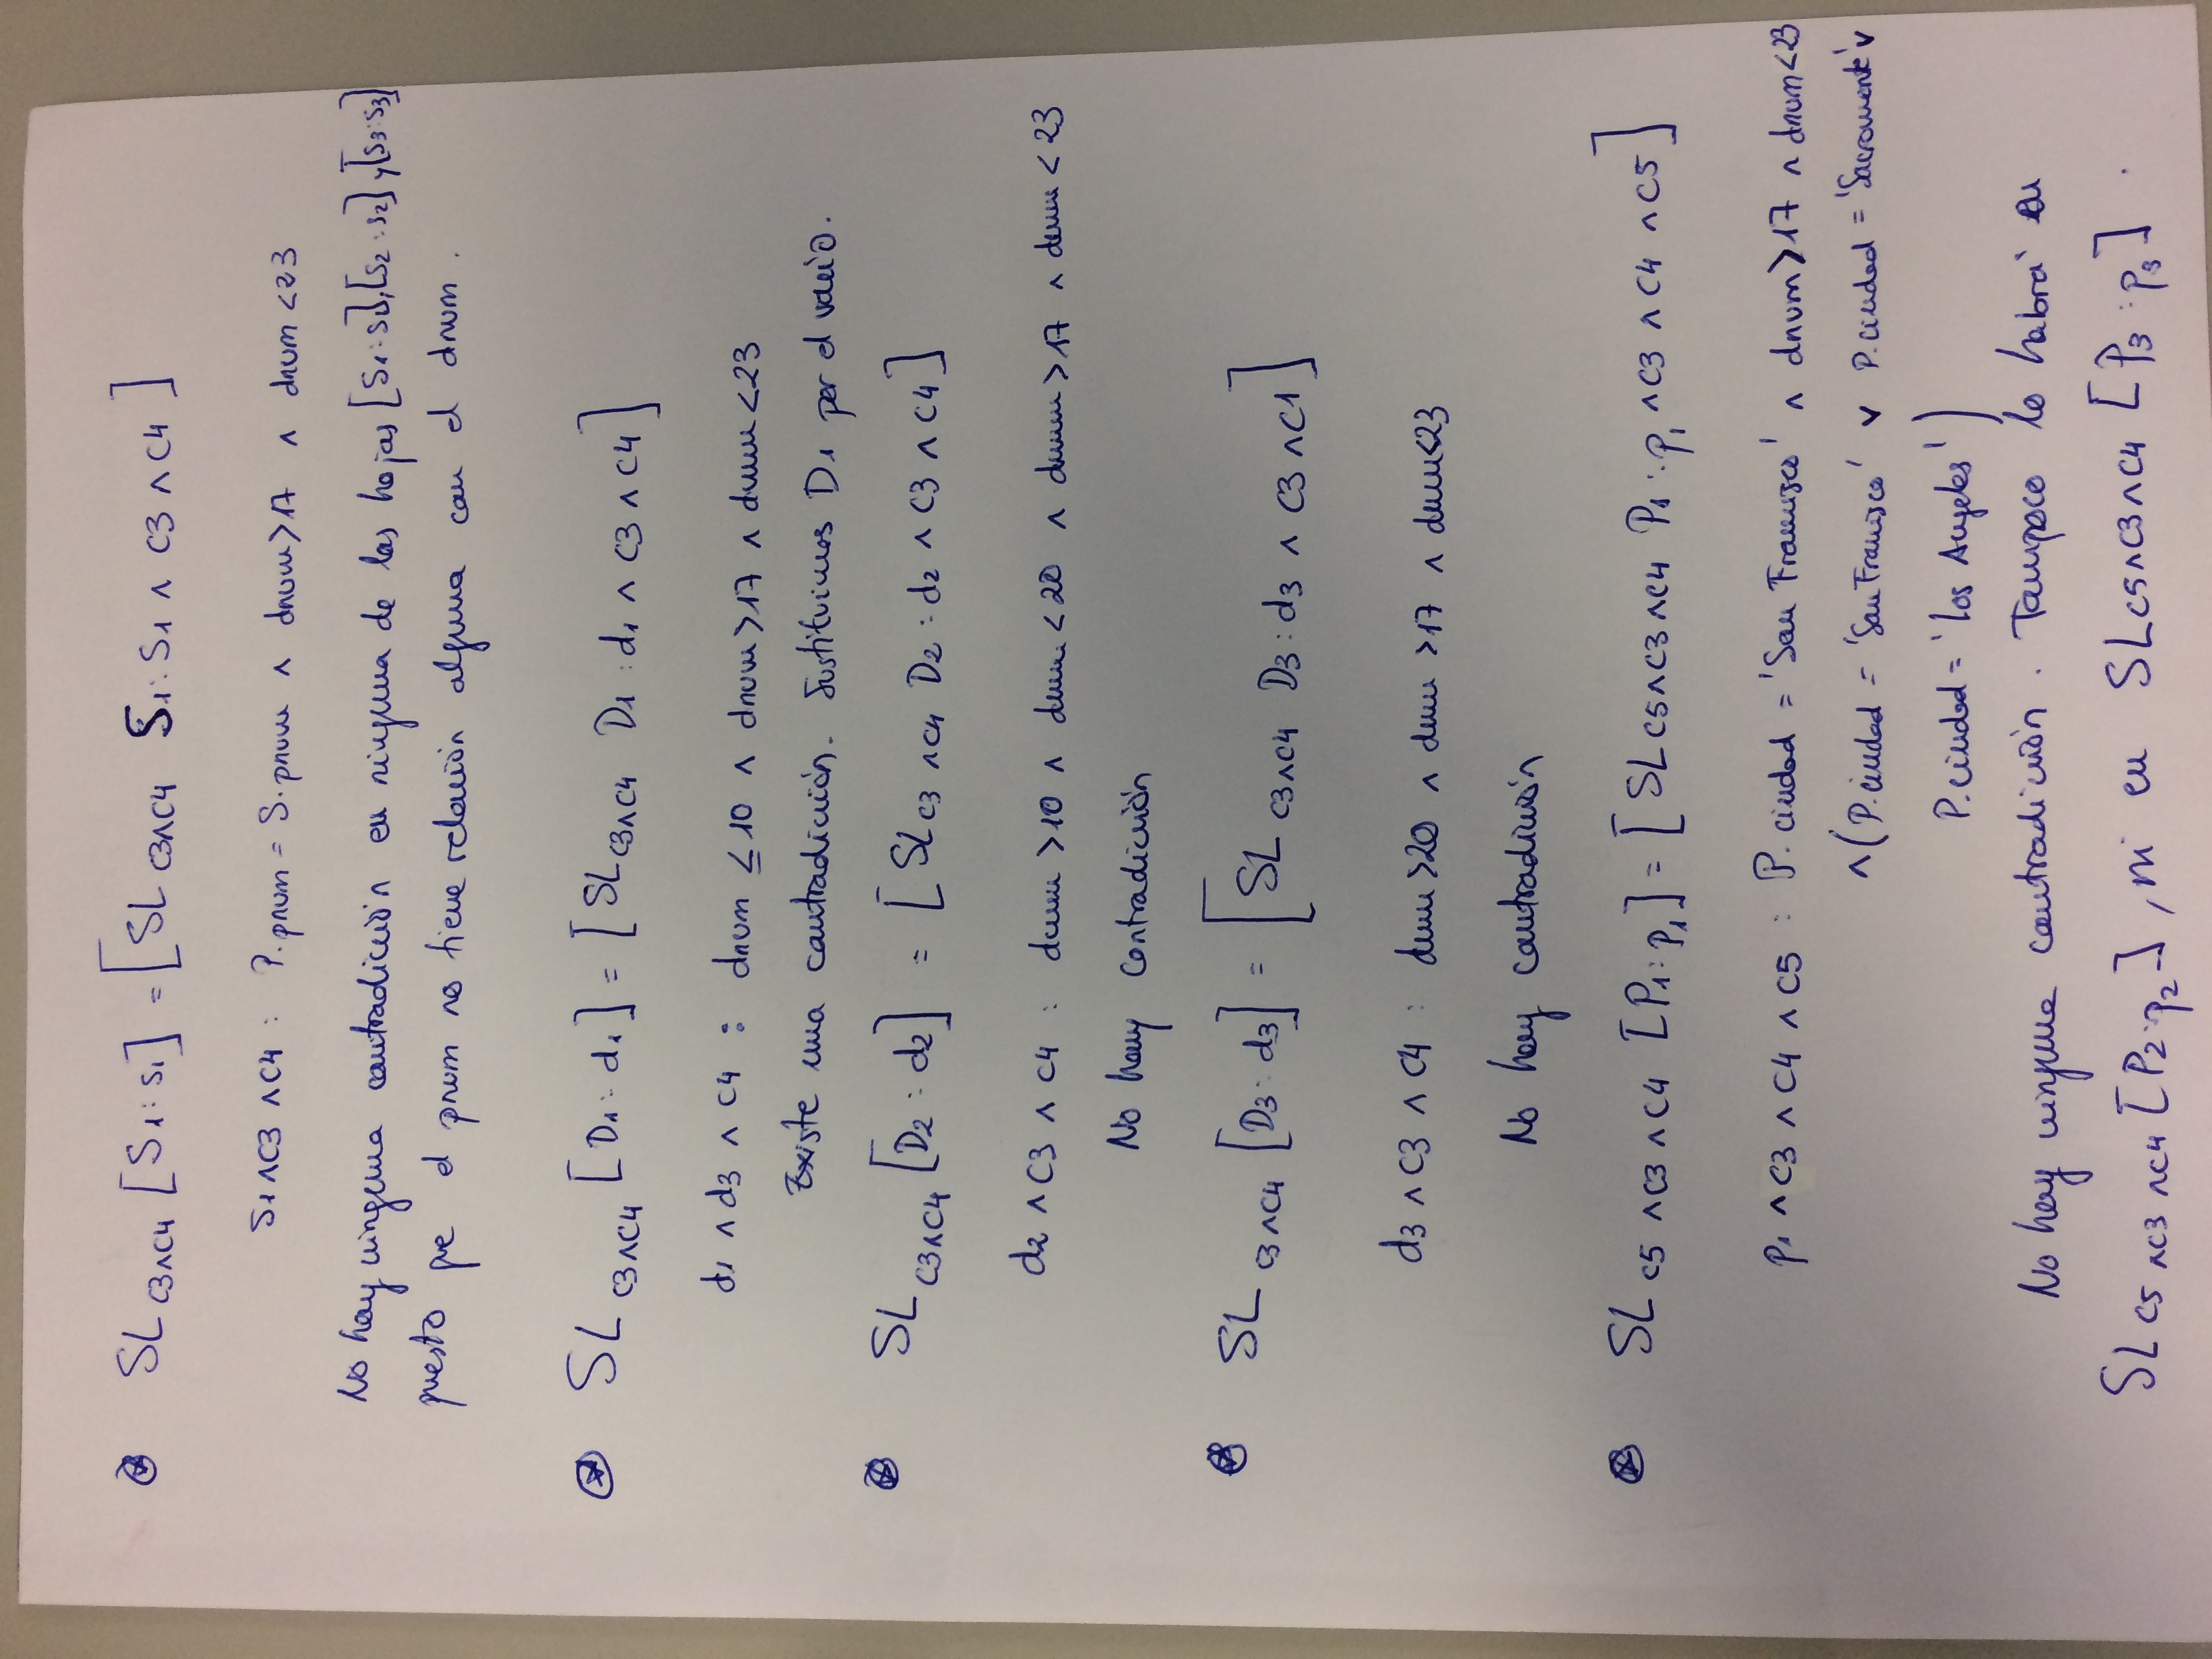 SL C3∧C4 [S1:s1] = [SL C3∧C4 S1:S1 ∧ C3 ∧ C4]
S1∧C3 ∧C4 : P.pnum = S.pnum ∧ dnum>17 ∧ dnum <23
No hay ninguna contradicción en ninguna de las hojas [S1:S1],[S2:S2] y [S3:S3]
puesto que el pnum no tiene relación alguna con el dnum.
SL C3∧C4 [D1:d1] = [SL C3∧C4 D1:d1 ∧ C3 ∧ C4]
d1 ∧ d3 ∧ C4 : dnum ≤ 10 ∧ dnum>17 ∧ dnum<23
Existe una contradicción. Sustituimos D1 por el vacío.
SL C3∧C4 [D2:d2] = [SL C3∧C4 D2:d2 ∧ C3 ∧ C4]
d2 ∧ C3 ∧ C4 : dnum >10 ∧ dnum <20 ∧ dnum >17 ∧ dnum < 23
No hay contradicción
SL C3∧C4 [D3:d3] = [SL C3∧C4 D3:d3 ∧ C3 ∧C1]
d3 ∧ C3 ∧ C4 : dnum>20 ∧ dnum >17 ∧ dnum<23
No hay contradicción
SL C5 ∧C3 ∧ C4 [P1:p1] = [SL C5∧C3∧C4 P1:p1 ∧C3 ∧ C4 ∧C5]
p1 ∧ C3 ∧ C4 ∧ C5 : P.ciudad = 'San Francisco' ∧ dnum>17 ∧ dnum<23
∧(P.ciudad = 'San Francisco' ∨ P.ciudad = 'Sacromente' ∨
P.ciudad = 'Los Angeles')
No hay ninguna contradicción. Tampoco lo habrá en
SL C5 ∧C3 ∧C4 [P2:p2], ni en SL C5∧C3∧C4 [P3:p3].